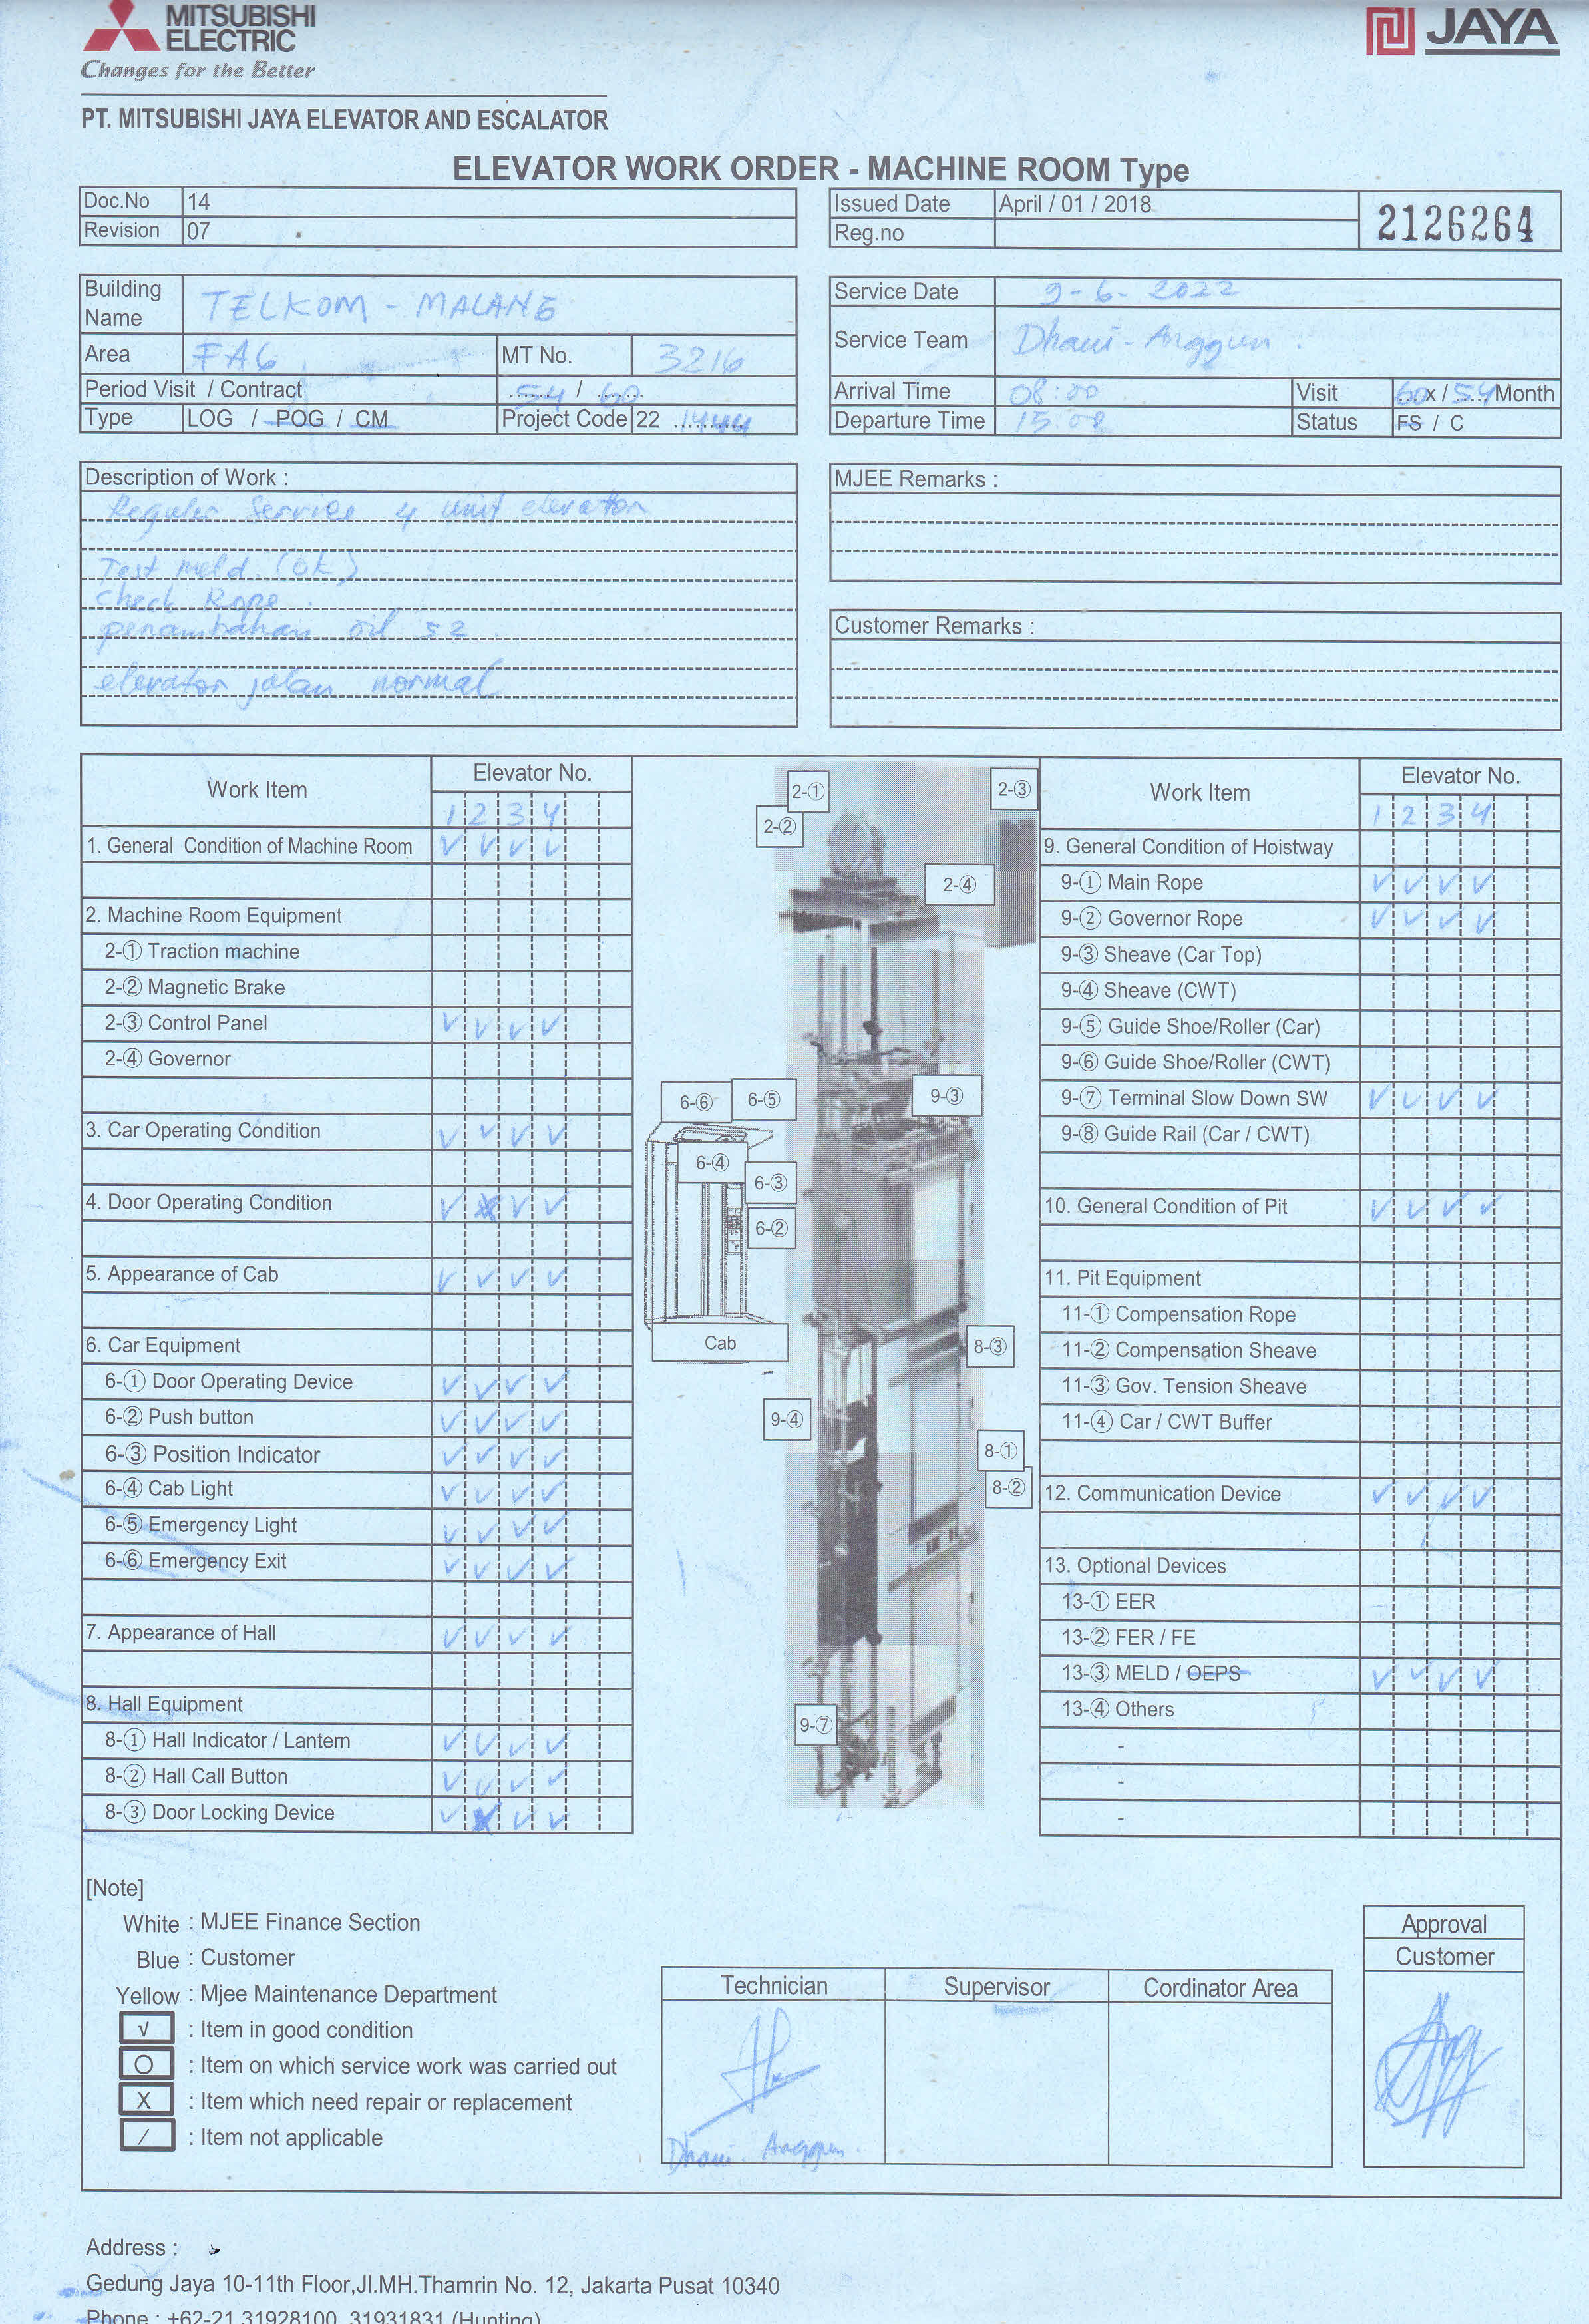 MITSUBISHI
ELECTRIC
Changes for the Better
JAYA
PT. MITSUBISHI JAYA ELEVATOR AND ESCALATOR
ELEVATOR WORK ORDER - MACHINE ROOM Type
Doc.No 14
Revision 07
Issued Date April / 01 / 2018
Reg.no
2126264
Building Name TELKOM - MALANG
Area FA6 MT No. 3216
Period Visit / Contract 54 / 60
Type LOG / POG / CM Project Code 22 1444
Service Date 9-6-2022
Service Team Dhani - Anggun
Arrival Time 08:00 Visit 60 x / 54 Month
Departure Time 15:00 Status FS / C
Description of Work :
Reguler Service 4 unit elevator
Test meld (ok)
check Rope
penambahan oil 52
elevator jalan normal
MJEE Remarks :
Customer Remarks :
Work Item Elevator No.
1 2 3 4
1. General Condition of Machine Room √ √ √ √
2. Machine Room Equipment
2-① Traction machine
2-② Magnetic Brake
2-③ Control Panel √ √ √ √
2-④ Governor
3. Car Operating Condition √ √ √ √
4. Door Operating Condition √ X √ √
5. Appearance of Cab √ √ √ √
6. Car Equipment
6-① Door Operating Device √ √ √ √
6-② Push button √ √ √ √
6-③ Position Indicator √ √ √ √
6-④ Cab Light √ √ √ √
6-⑤ Emergency Light √ √ √ √
6-⑥ Emergency Exit √ √ √ √
7. Appearance of Hall √ √ √ √
8. Hall Equipment
8-① Hall Indicator / Lantern √ √ √ √
8-② Hall Call Button √ √ √ √
8-③ Door Locking Device √ X √ √
2-①
2-③
2-②
2-④
9-③
6-⑥ 6-⑤
6-④
6-③
6-②
Cab
8-③
9-④
8-①
8-②
9-⑦
Work Item Elevator No.
1 2 3 4
9. General Condition of Hoistway
9-① Main Rope √ √ √ √
9-② Governor Rope √ √ √ √
9-③ Sheave (Car Top)
9-④ Sheave (CWT)
9-⑤ Guide Shoe/Roller (Car)
9-⑥ Guide Shoe/Roller (CWT)
9-⑦ Terminal Slow Down SW √ √ √ √
9-⑧ Guide Rail (Car / CWT)
10. General Condition of Pit √ √ √ √
11. Pit Equipment
11-① Compensation Rope
11-② Compensation Sheave
11-③ Gov. Tension Sheave
11-④ Car / CWT Buffer
12. Communication Device √ √ √ √
13. Optional Devices
13-① EER
13-② FER / FE
13-③ MELD / OEPS √ √ √ √
13-④ Others
-
-
-
[Note]
White : MJEE Finance Section
Blue : Customer
Yellow : Mjee Maintenance Department
√ : Item in good condition
O : Item on which service work was carried out
X : Item which need repair or replacement
/ : Item not applicable
Technician Supervisor Cordinator Area
Dhani Anggun
Approval
Customer
Address :
Gedung Jaya 10-11th Floor,Jl.MH.Thamrin No. 12, Jakarta Pusat 10340
Phone : +62-21 31928100, 31931831 (Hunting)